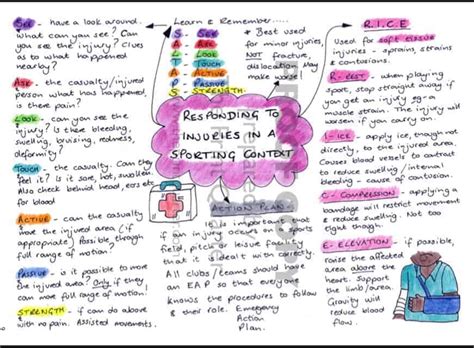 See - have a look around.
What can you see? Can
you see the injury? Clues
as to what happened
nearby?
Ask - the casualty/injured
person what has happened,
is there pain?
Look - can you see the
injury? Is there bleeding,
swelling, bruising, redness,
deformity?
Touch - the casualty. Can they
feel it? Is it sore, hot, swollen.
Also check behind head, ears etc
for blood
ACTIVE - can the casualty
move the injured area (if
appropriate) Possible, though
full range of motion?
PASSIVE - is it possible to move
the injured area? Only if they
can move full range of motion.
STRENGTH - if can do above
with no pain. Assisted movements.
Learn & Remember...
S - SEE
A - ASK
L - LOOK
T - TOUCH
A - ACTIVE
P - PASSIVE
S - STRENGTH.
* Best used
for minor injuries,
NOT fracture,
dislocation, may
make worse!
RESPONDING TO
INJURIES IN A
SPORTING CONTEXT
ACTION PLAN -
It is important that
if an injury occurs in a sports
field, pitch or leisure facility
that it is dealt with correctly.
All clubs/teams should have
an EAP so that everyone
knows the procedures to follow
& their role. Emergency
Action
Plan.
R.I.C.E
Used for soft tissue
injuries - sprains, strains
& contusions.
R - REST - when playing
sport, stop straight away if
you get an injury eg a
muscle strain. The injury will
worsen if you carry on.
I - ICE - apply ice, though not
directly, to the injured area.
Causes blood vessels to contract
to reduce swelling/internal
bleeding - cause of contusion.
C - COMPRESSION - applying a
bandage will restrict movement
& reduce swelling. Not too
tight though!
E - ELEVATION - if possible,
raise the affected
area above the
heart. Support
the limb/area.
Gravity will
reduce blood
flow.